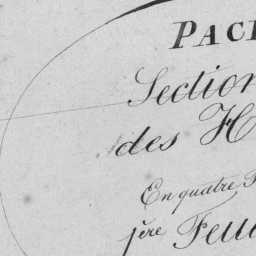 PACI
Section
des H
En quatre F
1ère Feui